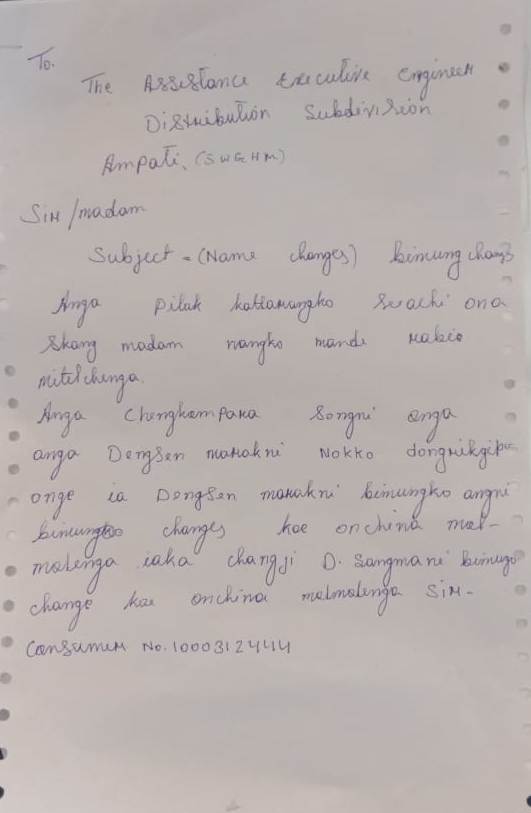 To.
The Assistance Executive Engineer
Distribution Subdivision
Ampati, (SWGHM)
Sir/madam
Subject = (Name changes) bimung changs
Anga pilak kattarangko seachi ona
Skang madam nangko mande rabie
mitelchenga.
Anga Chengkompara Songni anga
anga Dengsen marakni Nokko dongrikgipa
onge ia Dengsen marakni bimungko angni
bimungko changes kae onchina mol-
molenga iaka changji D. Sangmani bimugo
change kae onchina molmolenga Sir-
Consumer No. 1000312444